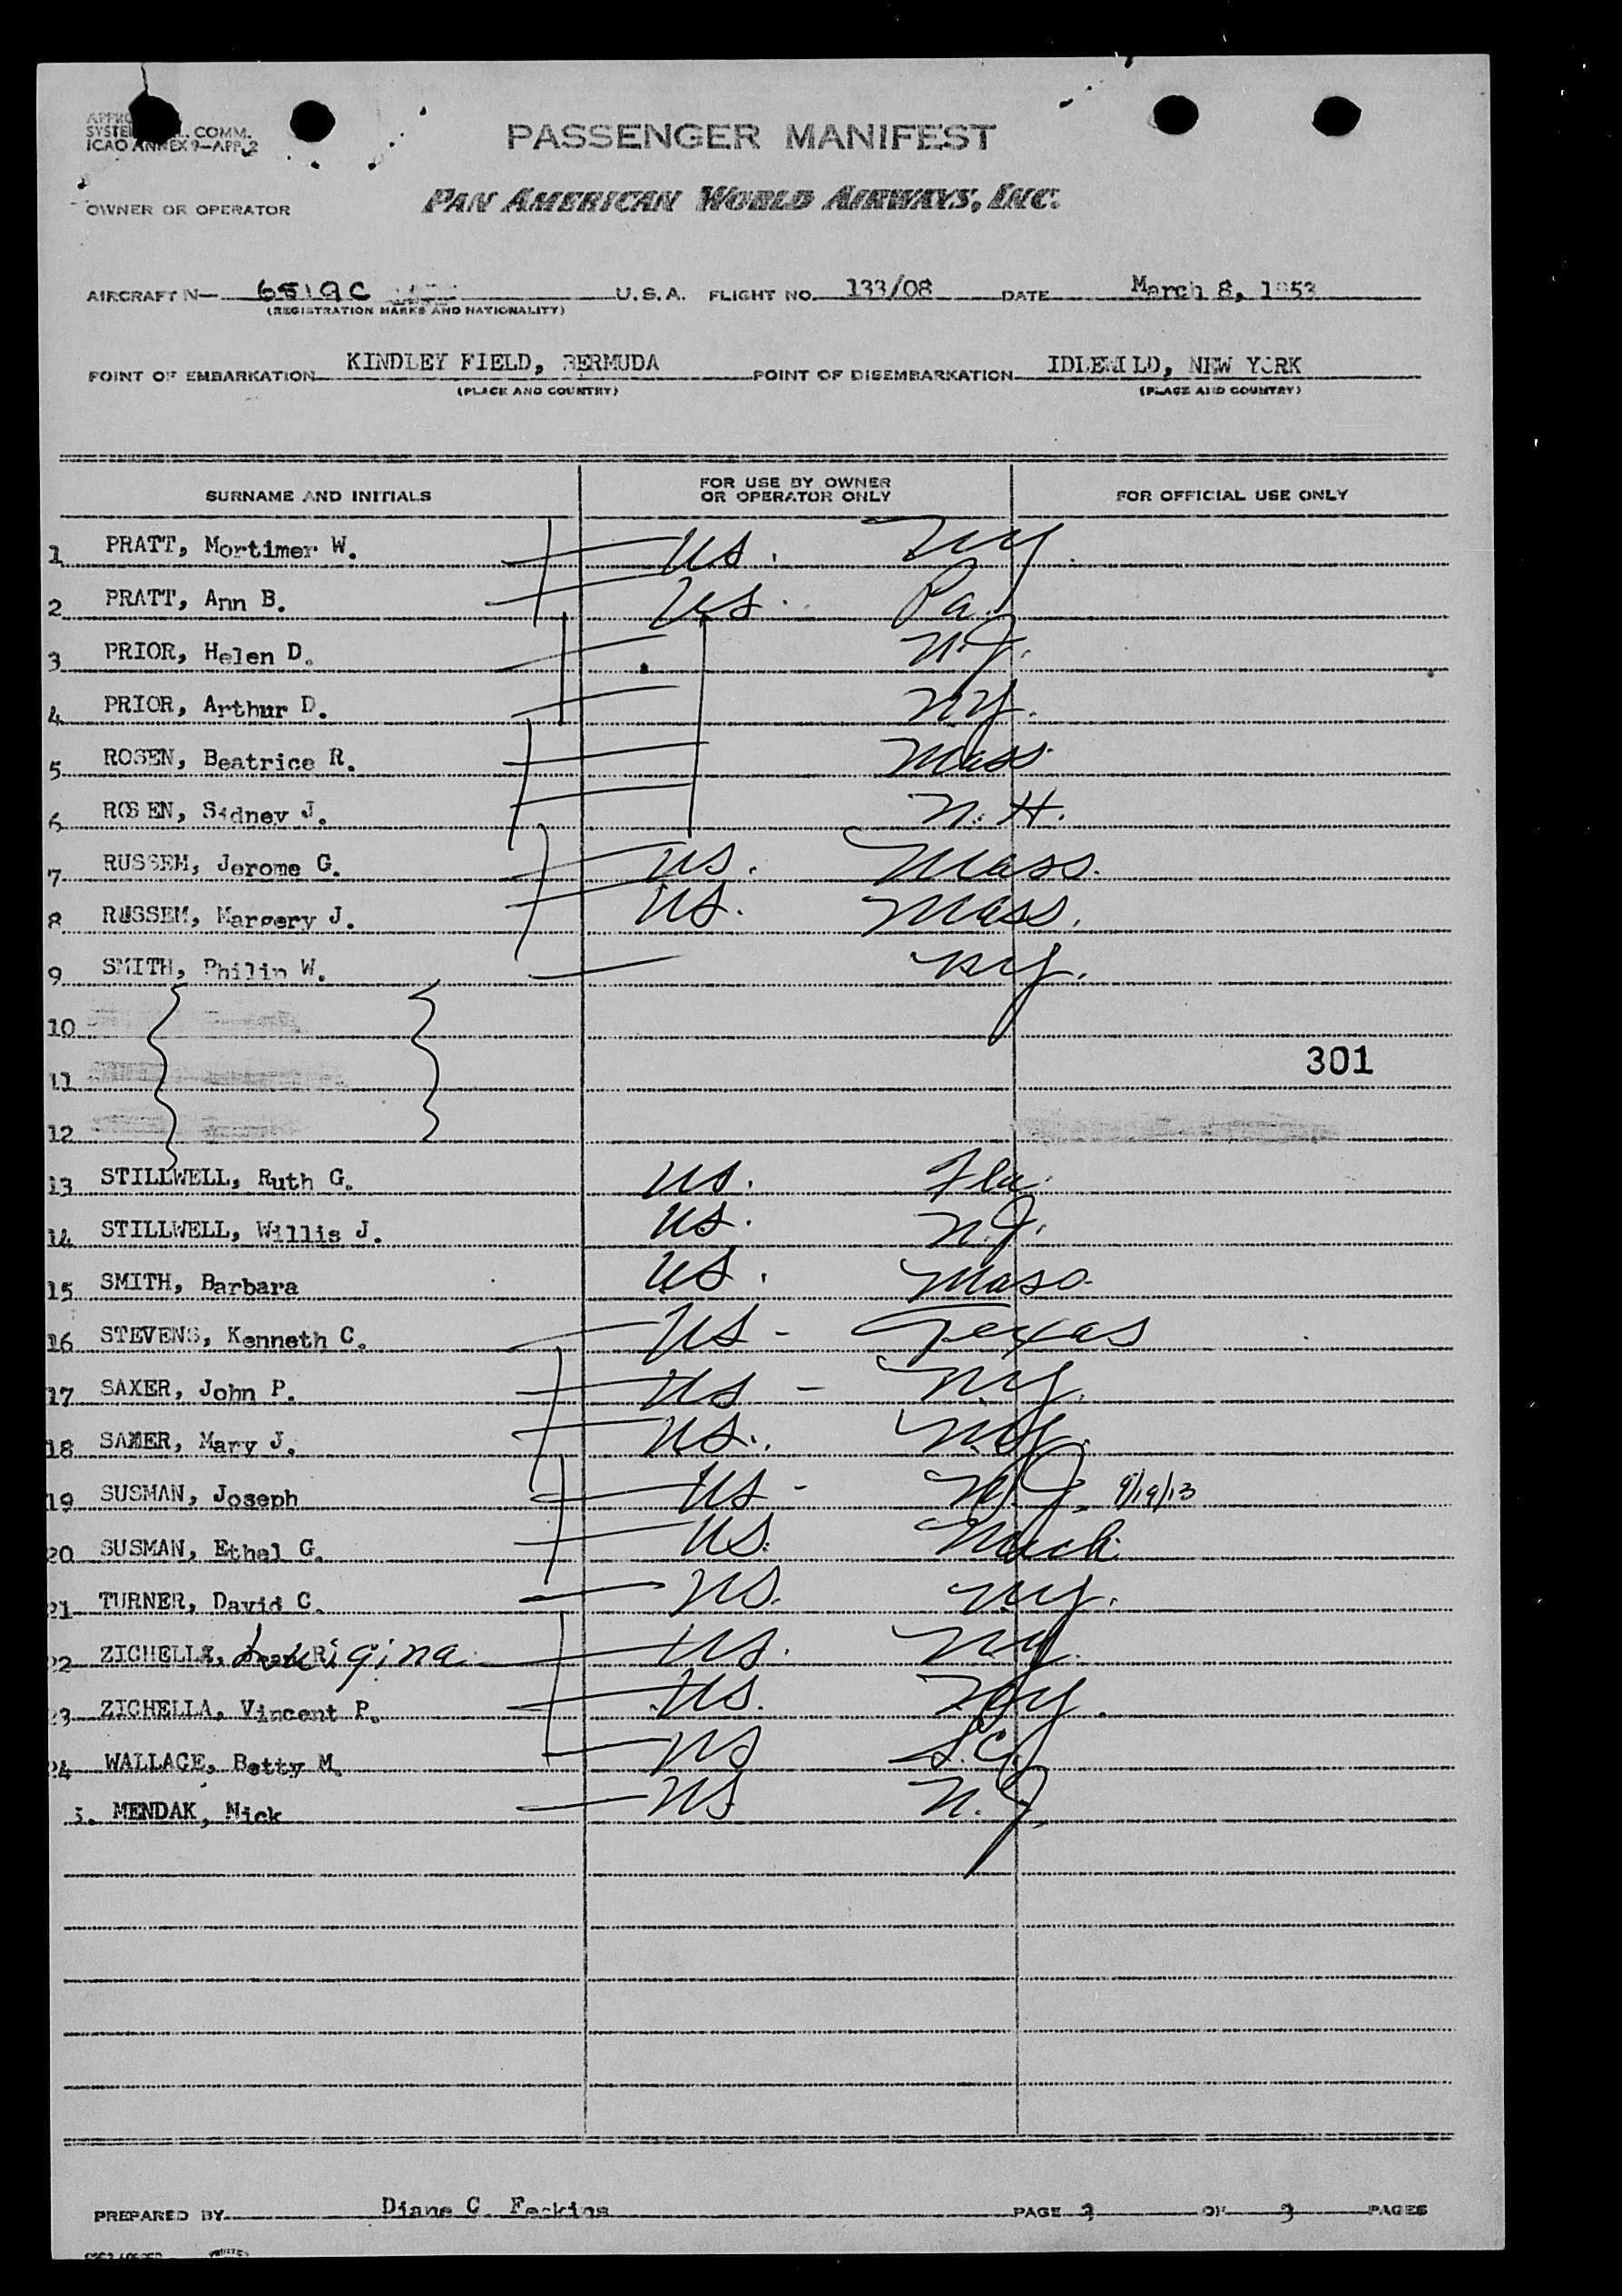 SYSTE COMM.
ICAO ANNEX 9—APP. 2
PASSENGER MANIFEST
OWNER OR OPERATOR PAN AMERICAN WORLD AIRWAYS, INC.
AIRCRAFT N— 6519C U.S.A. FLIGHT NO. 133/08 DATE March 8, 1953
(REGISTRATION MARKS AND NATIONALITY)
POINT OF EMBARKATION KINDLEY FIELD, BERMUDA POINT OF DISEMBARKATION IDLEWILD, NEW YORK
(PLACE AND COUNTRY) (PLACE AND COUNTRY)
SURNAME AND INITIALS FOR USE BY OWNER OR OPERATOR ONLY FOR OFFICIAL USE ONLY
1 PRATT, Mortimer W. US. NY.
2 PRATT, Ann B. US. Pa.
3 PRIOR, Helen D. N.J.
4 PRIOR, Arthur D. NY.
5 ROSEN, Beatrice R. Mass.
6 ROSEN, Sidney J. N.H.
7 RUSSEM, Jerome G. US. Mass.
8 RUSSEM, Margery J. US. Mass.
9 SMITH, Philip W. NY.
10
11 301
12
13 STILLWELL, Ruth G. US. Fla.
14 STILLWELL, Willis J. US. N.J.
15 SMITH, Barbara US. Mass.
16 STEVENS, Kenneth C. US - Texas
17 SAXER, John P. US - NY.
18 SAXER, Mary J. US. NY.
19 SUSMAN, Joseph US - N.J. 9/19/13
20 SUSMAN, Ethel G. US. Mich.
21 TURNER, David C. US. NY.
22 ZICHELLA, Luigina US. NY.
23 ZICHELLA, Vincent P. US. NY.
24 WALLACE, Betty M. US S.C.
MENDAK, Nick US N.J.
PREPARED BY Diane C. Feskins PAGE 3 OF 3 PAGES